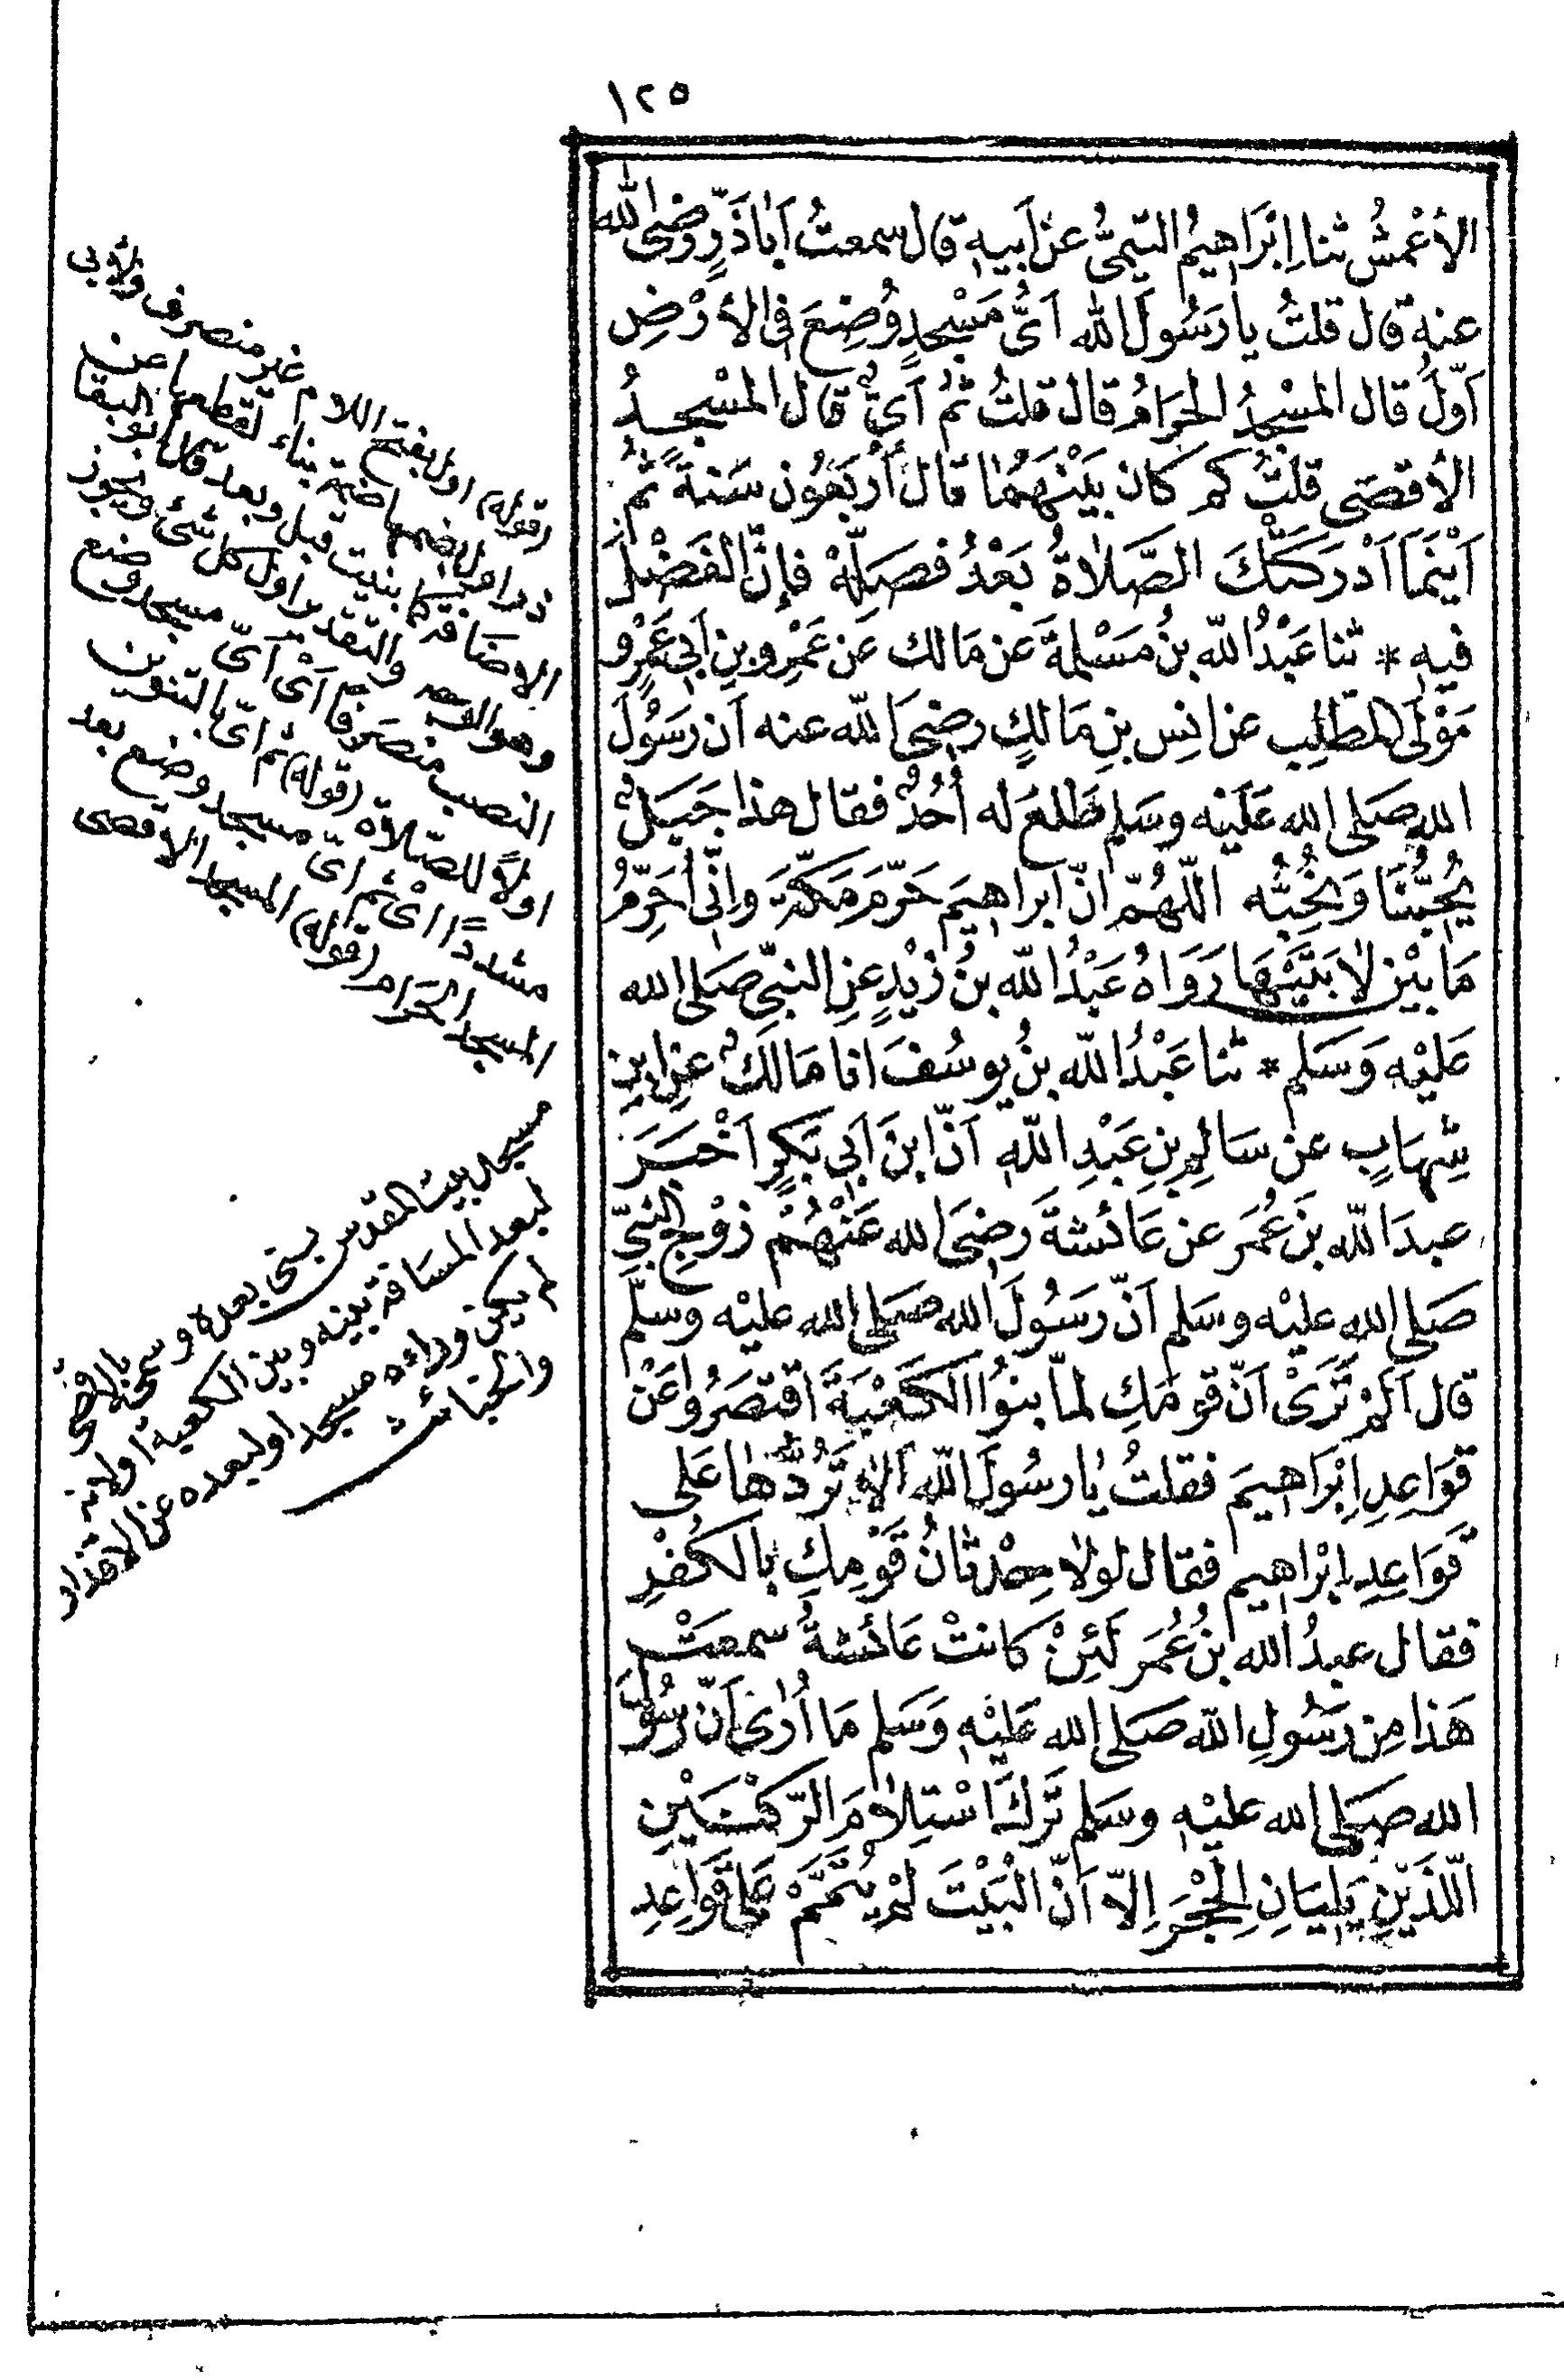 ١٢٥
الأَعْمَشُ ثنا إِبْرَاهِيمُ التَّيْمِيُّ عَنْ أَبِيهِ قال سمعتُ أَبَا ذَرٍّ رَضِيَ الله
عنه قال قلتُ يا رَسُولَ الله أَيُّ مَسْجِدٍ وُضِعَ فِي الأَرْضِ
أَوَّلُ قال المَسْجِدُ الحَرَامُ قال قلتُ ثُمَّ أَيٌّ قال المَسْجِدُ
الأَقصَى قلتُ كَمْ كان بَيْنَهُمَا قال أَرْبَعُون سَنةً ثُمَّ
أَيْنَمَا أَدْرَكَتْكَ الصَّلَاةُ بَعْدُ فَصَلِّهْ فإِنَّ الفَضْلَ
فيهِ * ثنا عَبْدُ اللهِ بنُ مَسْلمةَ عَن مَالك عَن عَمْرِو بنِ أَبِي عَمْرٍو
مَوْلَى المُطَّلِبِ عن انس بنِ مَالكٍ رضِيَ الله عنه أَن رَسُولَ
الله صَلى الله عَلَيْه وسَلم طَلعَ له أُحُدٌ فقال هذا جَبَلٌ
يُحِبُّنَا وَنُحِبُّه اللَّهُمَّ انّ ابراهيمَ حَرَّمَ مَكّةَ وانِّي أُحَرِّمُ
مَا بَيْن لَابَتَيْهَا رَوَاهُ عَبْدُ اللهِ بنُ زَيْدٍ عَنِ النبيِّ صَلى الله
عَلَيْه وَسَلم * ثنا عَبْدُ اللهِ بنُ يوسُفَ انا مَالكٌ عنِ ابنِ
شِهَابٍ عن سَالِمِ بنِ عَبْدِ اللهِ أَنّ ابنَ أَبِي بَكرٍ أَخْبَرَ
عبدَ اللهِ بنَ عُمَرَ عن عَائشةَ رَضِيَ الله عَنْهُمْ زَوْجِ النبيِّ
صَلى الله عليْه وسَلم أَنّ رَسُولَ الله صَلى الله عليْه وسلّم
قال أَلَمْ تَرَيْ أَنّ قومَكِ لمّا بنوُا الكَعْبَةَ اقتصَرُوا عَنْ
قوَاعِدِ إِبْرَاهِيمَ فقلتُ يا رسُولَ اللهِ أَلَا تَرُدُّها عَلى
قَوَاعِدِ إِبْراهِيم فقال لولا حِدْثانُ قَوْمِكِ بالكُفْرِ
فقال عبدُ الله بنُ عُمَرَ لَئِنْ كانتْ عَائشةُ سمعَتْ
هَذا مِن رَسُولِ اللهِ صَلى الله عَليْهِ وَسَلم مَا أُرَى أَنّ رَسُولَ
الله صَلى الله عليْهِ وسَلم تَرَكَ اسْتِلَامَ الرّكنَيْنِ
اللَّذَيْنِ يَلِيَانِ الْحِجْرَ إِلّا أَنّ الْبَيْتَ لَمْ يُتَمَّمْ عَلَى قَوَاعِدِ
(قوله) اول بفتح اللام غير منصرف ولأبي
ذر اول بضمها ضمة بناء لقطعها عن
الاضافة كما بنيت قبل وبعد قال ابو البقا
وهو الوجه والتقدير اول كل شئ ويجوز
النصب منصرفا أَيْ أَيّ مسجد وضع
اولاً للصّلاة (قوله) ثم ايّ بالتنوين
مشدداً اي ثم ايّ مسجد وضع بعد
المسجد الحرام (قوله) المسجد الاقصى
مسجد بيت المقدس يسمى بعده وسمي بالاقصى
لبعد المسافة بينه وبين الكعبة اولانه
لم يكن وراءه مسجد اولبعده عن الاقذار
والخبائث